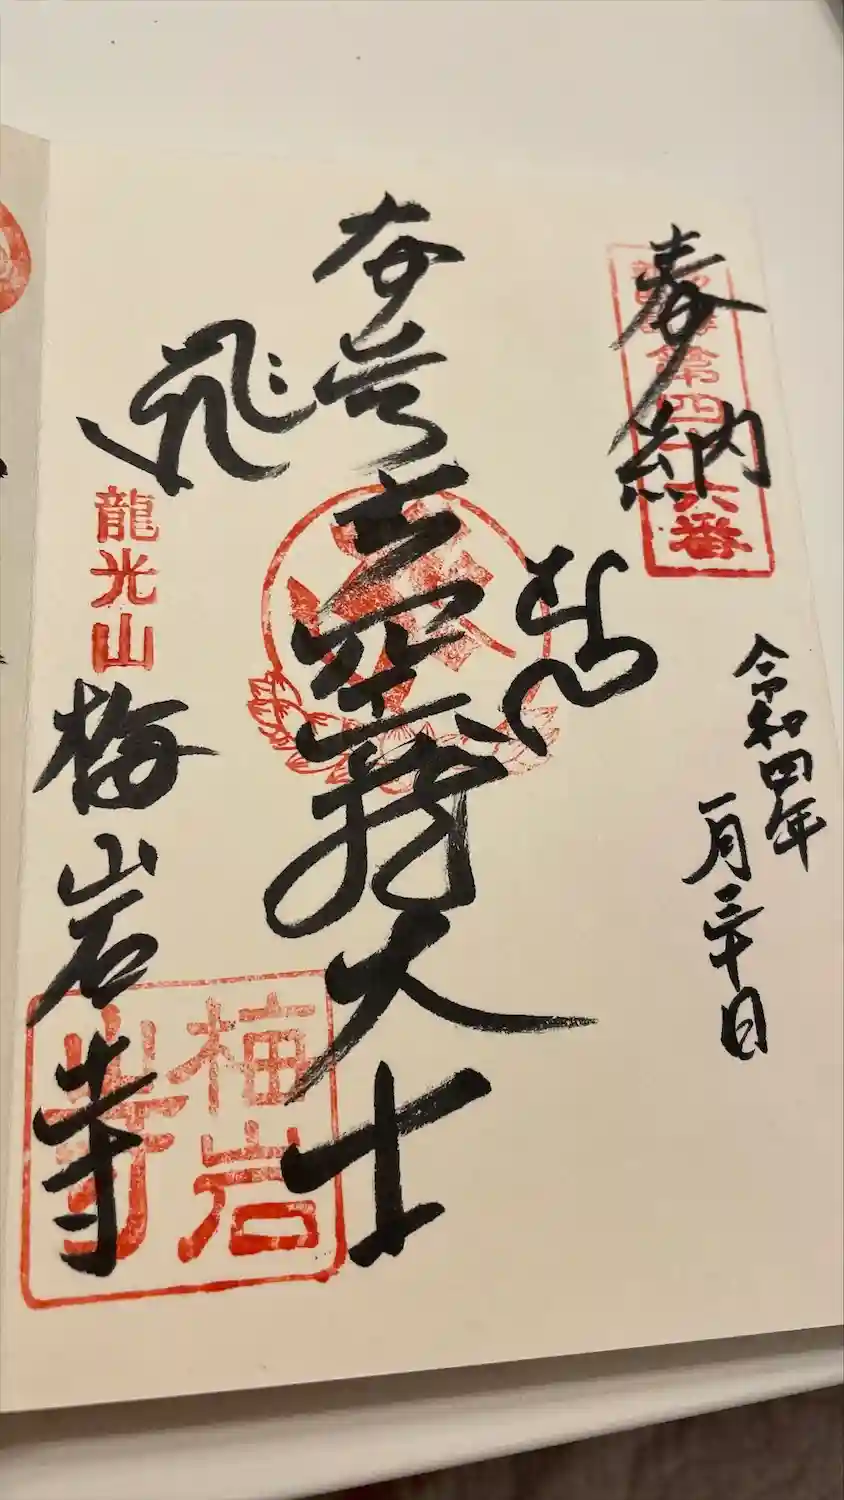 奉納
第四十六番
令和四年
一月三十日
虚空蔵大士
龍光山
梅岩寺
梅岩
山寺